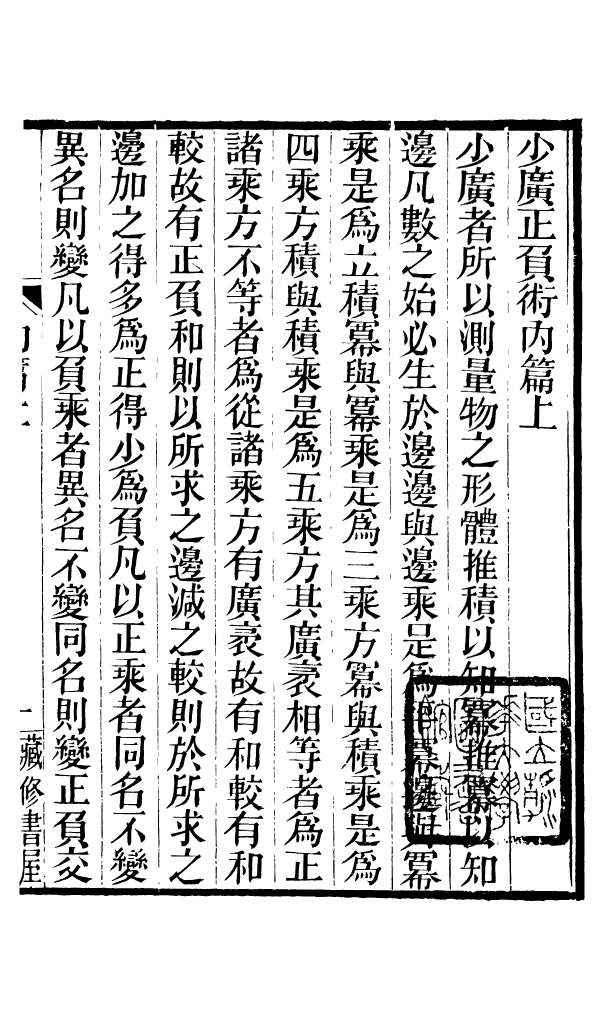 少廣正負術內篇上
少廣者所以測量物之形體推積以知冪推冪以知
邊凡數之始必生於邊邊與邊乘是爲冪邊與冪
乘是爲立積冪與冪乘是爲三乘方冪與積乘是爲
四乘方積與積乘是爲五乘方其廣袤相等者爲正
諸乘方不等者爲從諸乘方有廣袤故有和較有和
較故有正負和則以所求之邊減之較則於所求之
邊加之得多爲正得少爲負凡以正乘者同名不變
異名則變凡以負乘者異名不變同名則變正負交
一 藏修書屋